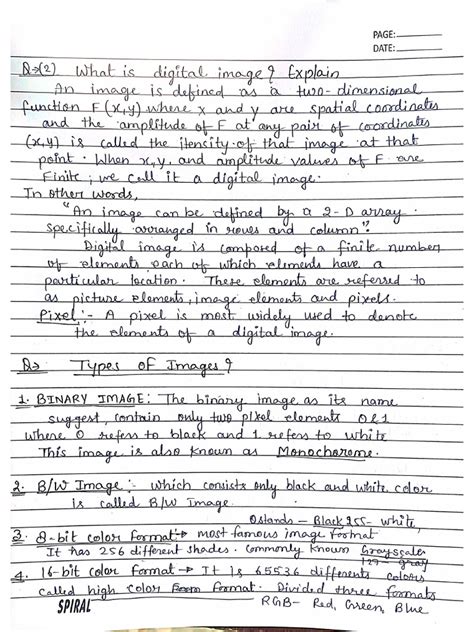 PAGE:
DATE:
Q→(2) What is digital image? Explain
An image is defined as a two-dimensional
function F(x,y) where x and y are spatial coordinates
and the amplitude of F at any pair of coordinates
(x,y) is called the itensity of that image at that
point. When x,y, and amplitude values of F are
Finite, we call it a digital image.
In other words,
"An image can be defined by a 2-D array
specifically arranged in rows and column."
Digital image is composed of a finite number
of elements each of which elements have a
particular location. These elements are referred to
as picture elements, image elements and pixels.
Pixel:- A pixel is most widely used to denote
the elements of a digital image.
Q→ Types of Images?
1. BINARY IMAGE: The binary image as its name
suggest, contain only two pixel elements 0 & 1
where 0 refers to black and 1 refers to white.
This image is also known as Monochorome.
2. B/W Image:- which consists only black and white color
is called B/W Image.
0 stands - Black 255- white,
3. 8-bit color format→ most famous image format
It has 256 different shades. Commonly known Grayscale
127- gray
4. 16-bit color format→ It is 65536 different colors
called high color format. Divided three formats
RGB- Red, Green, Blue
SPIRAL